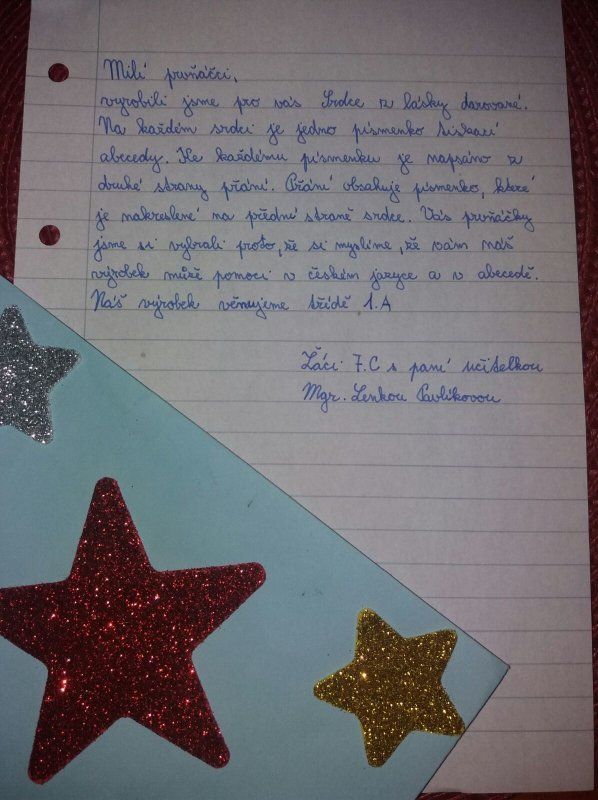 Milí prvňáčci,
vyrobili jsme pro vás Srdce z lásky darované.
Na každém srdci je jedno písmenko tiskací
abecedy. Ke každému písmenku je napsáno z
druhé strany přání. Přání obsahuje písmenko, které
je nakreslené na přední straně srdce. Vás prvňáčky
jsme si vybrali proto, že si myslíme, že vám náš
výrobek může pomoci v českém jazyce a v abecedě.
Náš výrobek věnujeme třídě 1.A
Žáci 7.C s paní učitelkou
Mgr. Lenkou Pavlíkovou